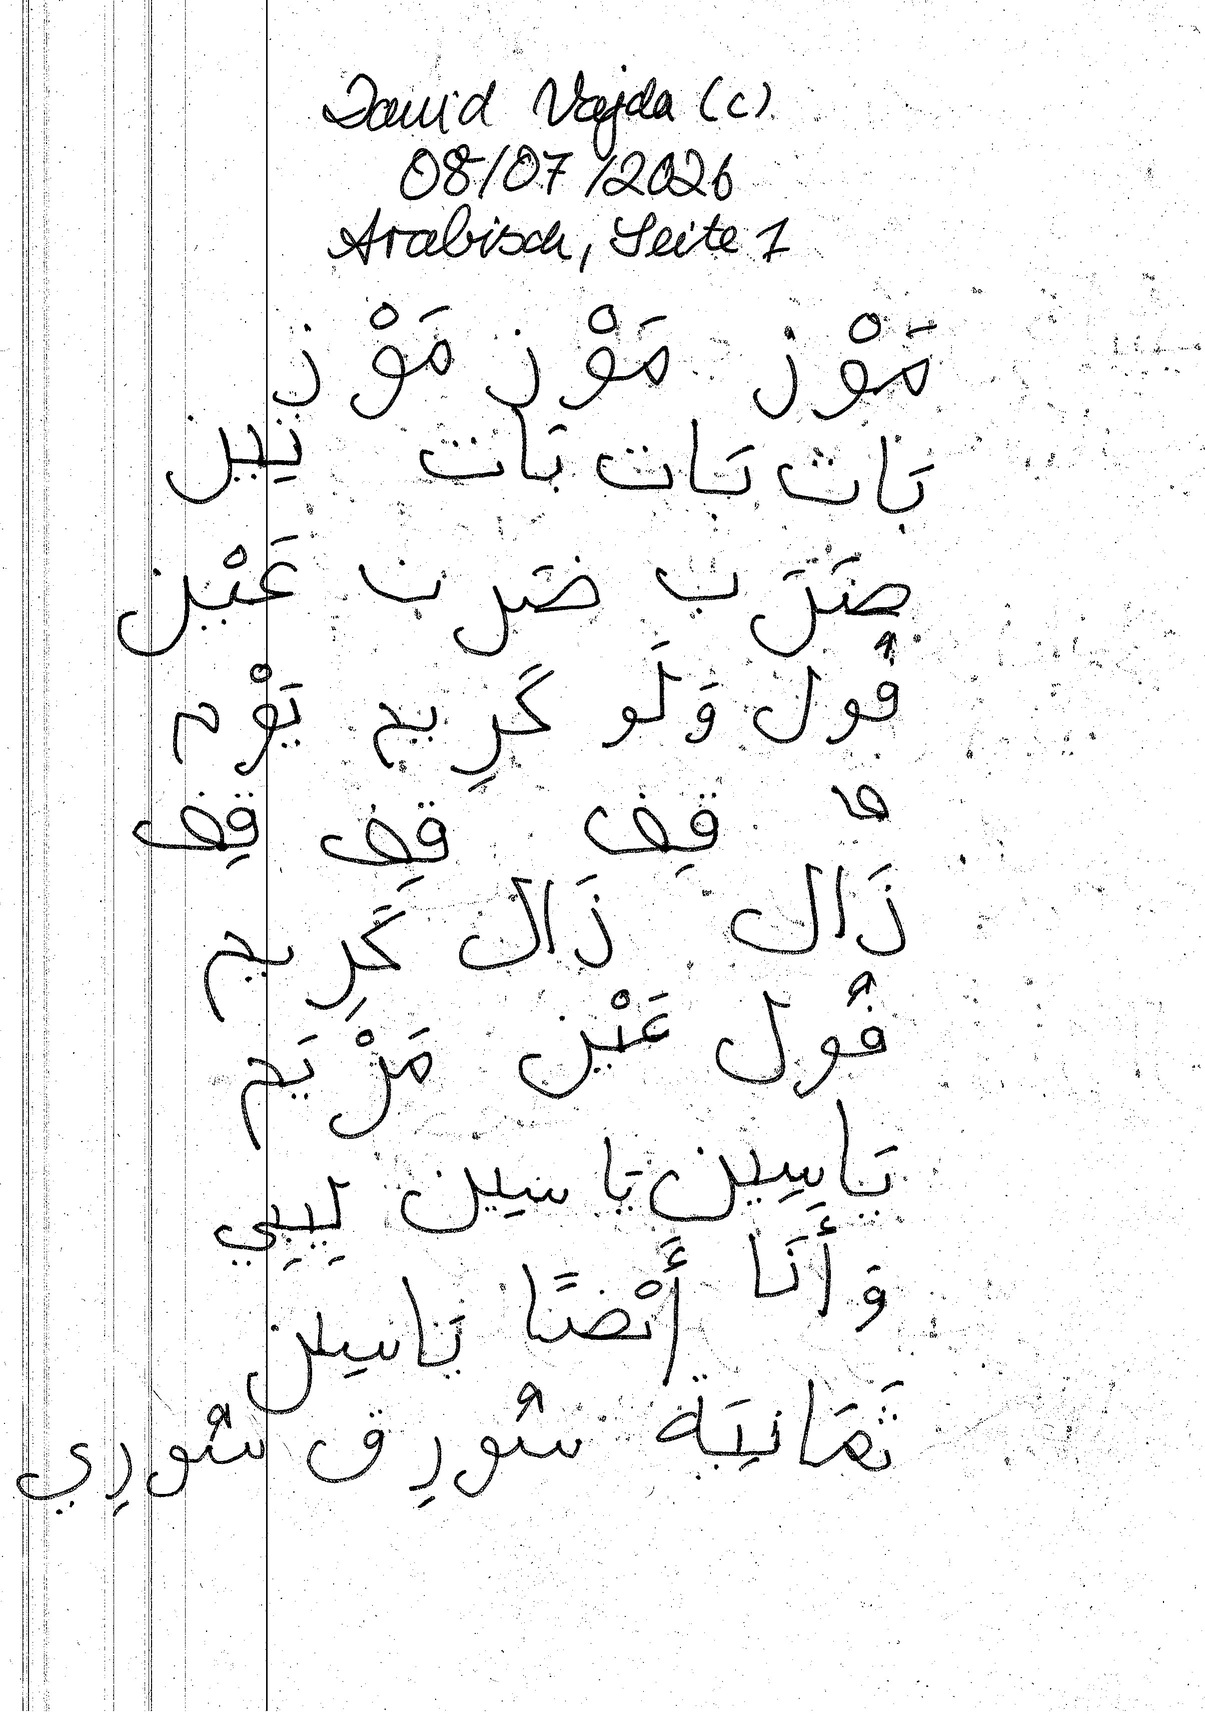 David Vajda (c)
08/07/2026
Arabisch, Seite 1
مَوْز مَوْز مَوْز
بَاث بَات بَات
ضَرَب ضَرب عَيْن
فُول وَلَو كَرِيم يَوْم
قِف قِف قِف
ذَال ذَال كَرِيم
فُول عَيْن مَرْيَم
يَاسِين يَاسِين لِيبِي
وَ أَنَا أَيْضًا يَاسِين
ثَمَانِيَة سُورِي